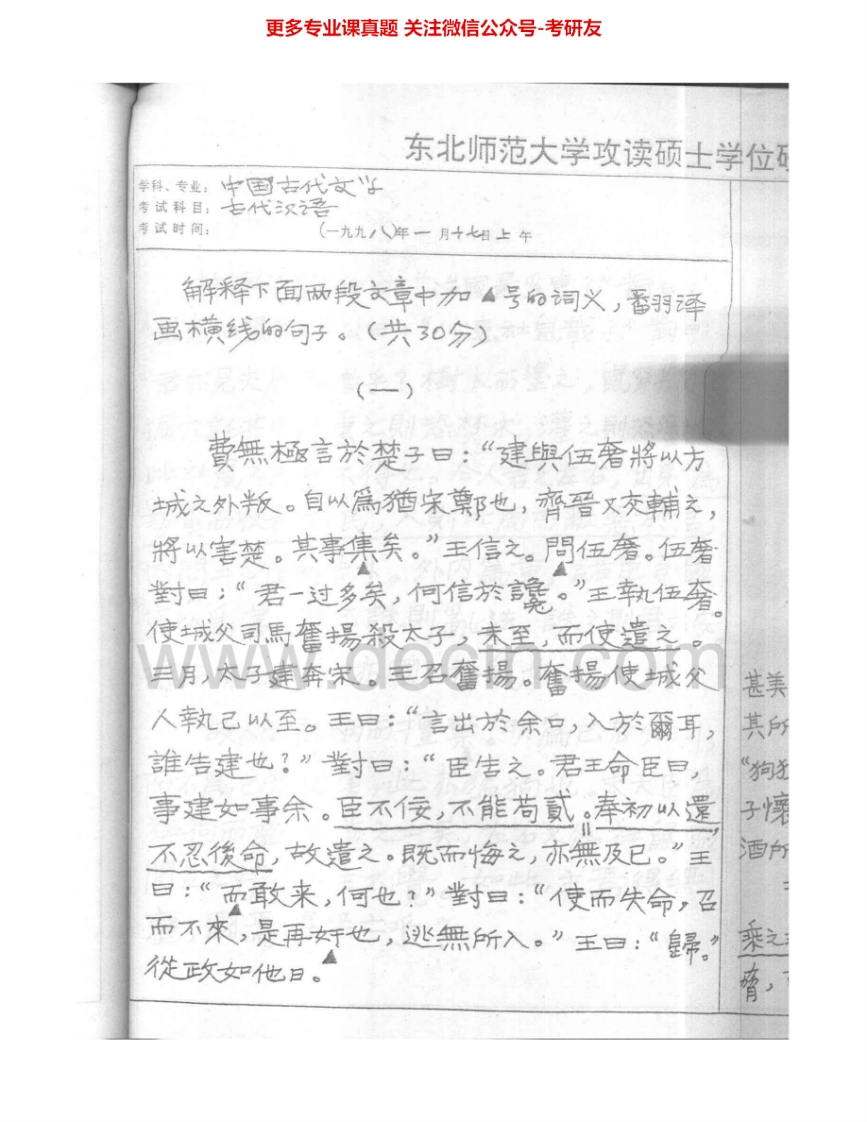 更多专业课真题 关注微信公众号-考研友
东北师范大学攻读硕士学位研
学科、专业：中国古代文学
考试科目：古代汉语
考试时间：（一九九八）年一月十七日上午
解释下面两段文章中加▲号的词义，翻译
画横线的句子。（共30分）
（一）
費無極言於楚子曰：“建與伍奢將以方
城之外叛。自以爲猶宋鄭也，齊晉又交輔之，
將以害楚。其事集矣。”王信之。問伍奢。伍奢
對曰：“君一过多矣，何信於讒。”王執伍奢。
使城父司馬奮揚殺太子，未至，而使遣之。
三月，太子建奔宋。王召奮揚。奮揚使城父
人執己以至。王曰：“言出於余口，入於爾耳，
誰告建也？”對曰：“臣告之。君王命臣曰，
事建如事余。臣不佞，不能苟貳。奉初以還，
不忍後命，故遣之。既而悔之，亦無及已。”王
曰：“而敢来，何也？”對曰：“使而失命，召
而不來，是再奸也，逃無所入。”王曰：“歸。”
從政如他日。
甚美
其所
“狗
子懷
酒所
乘之
www.docin.com